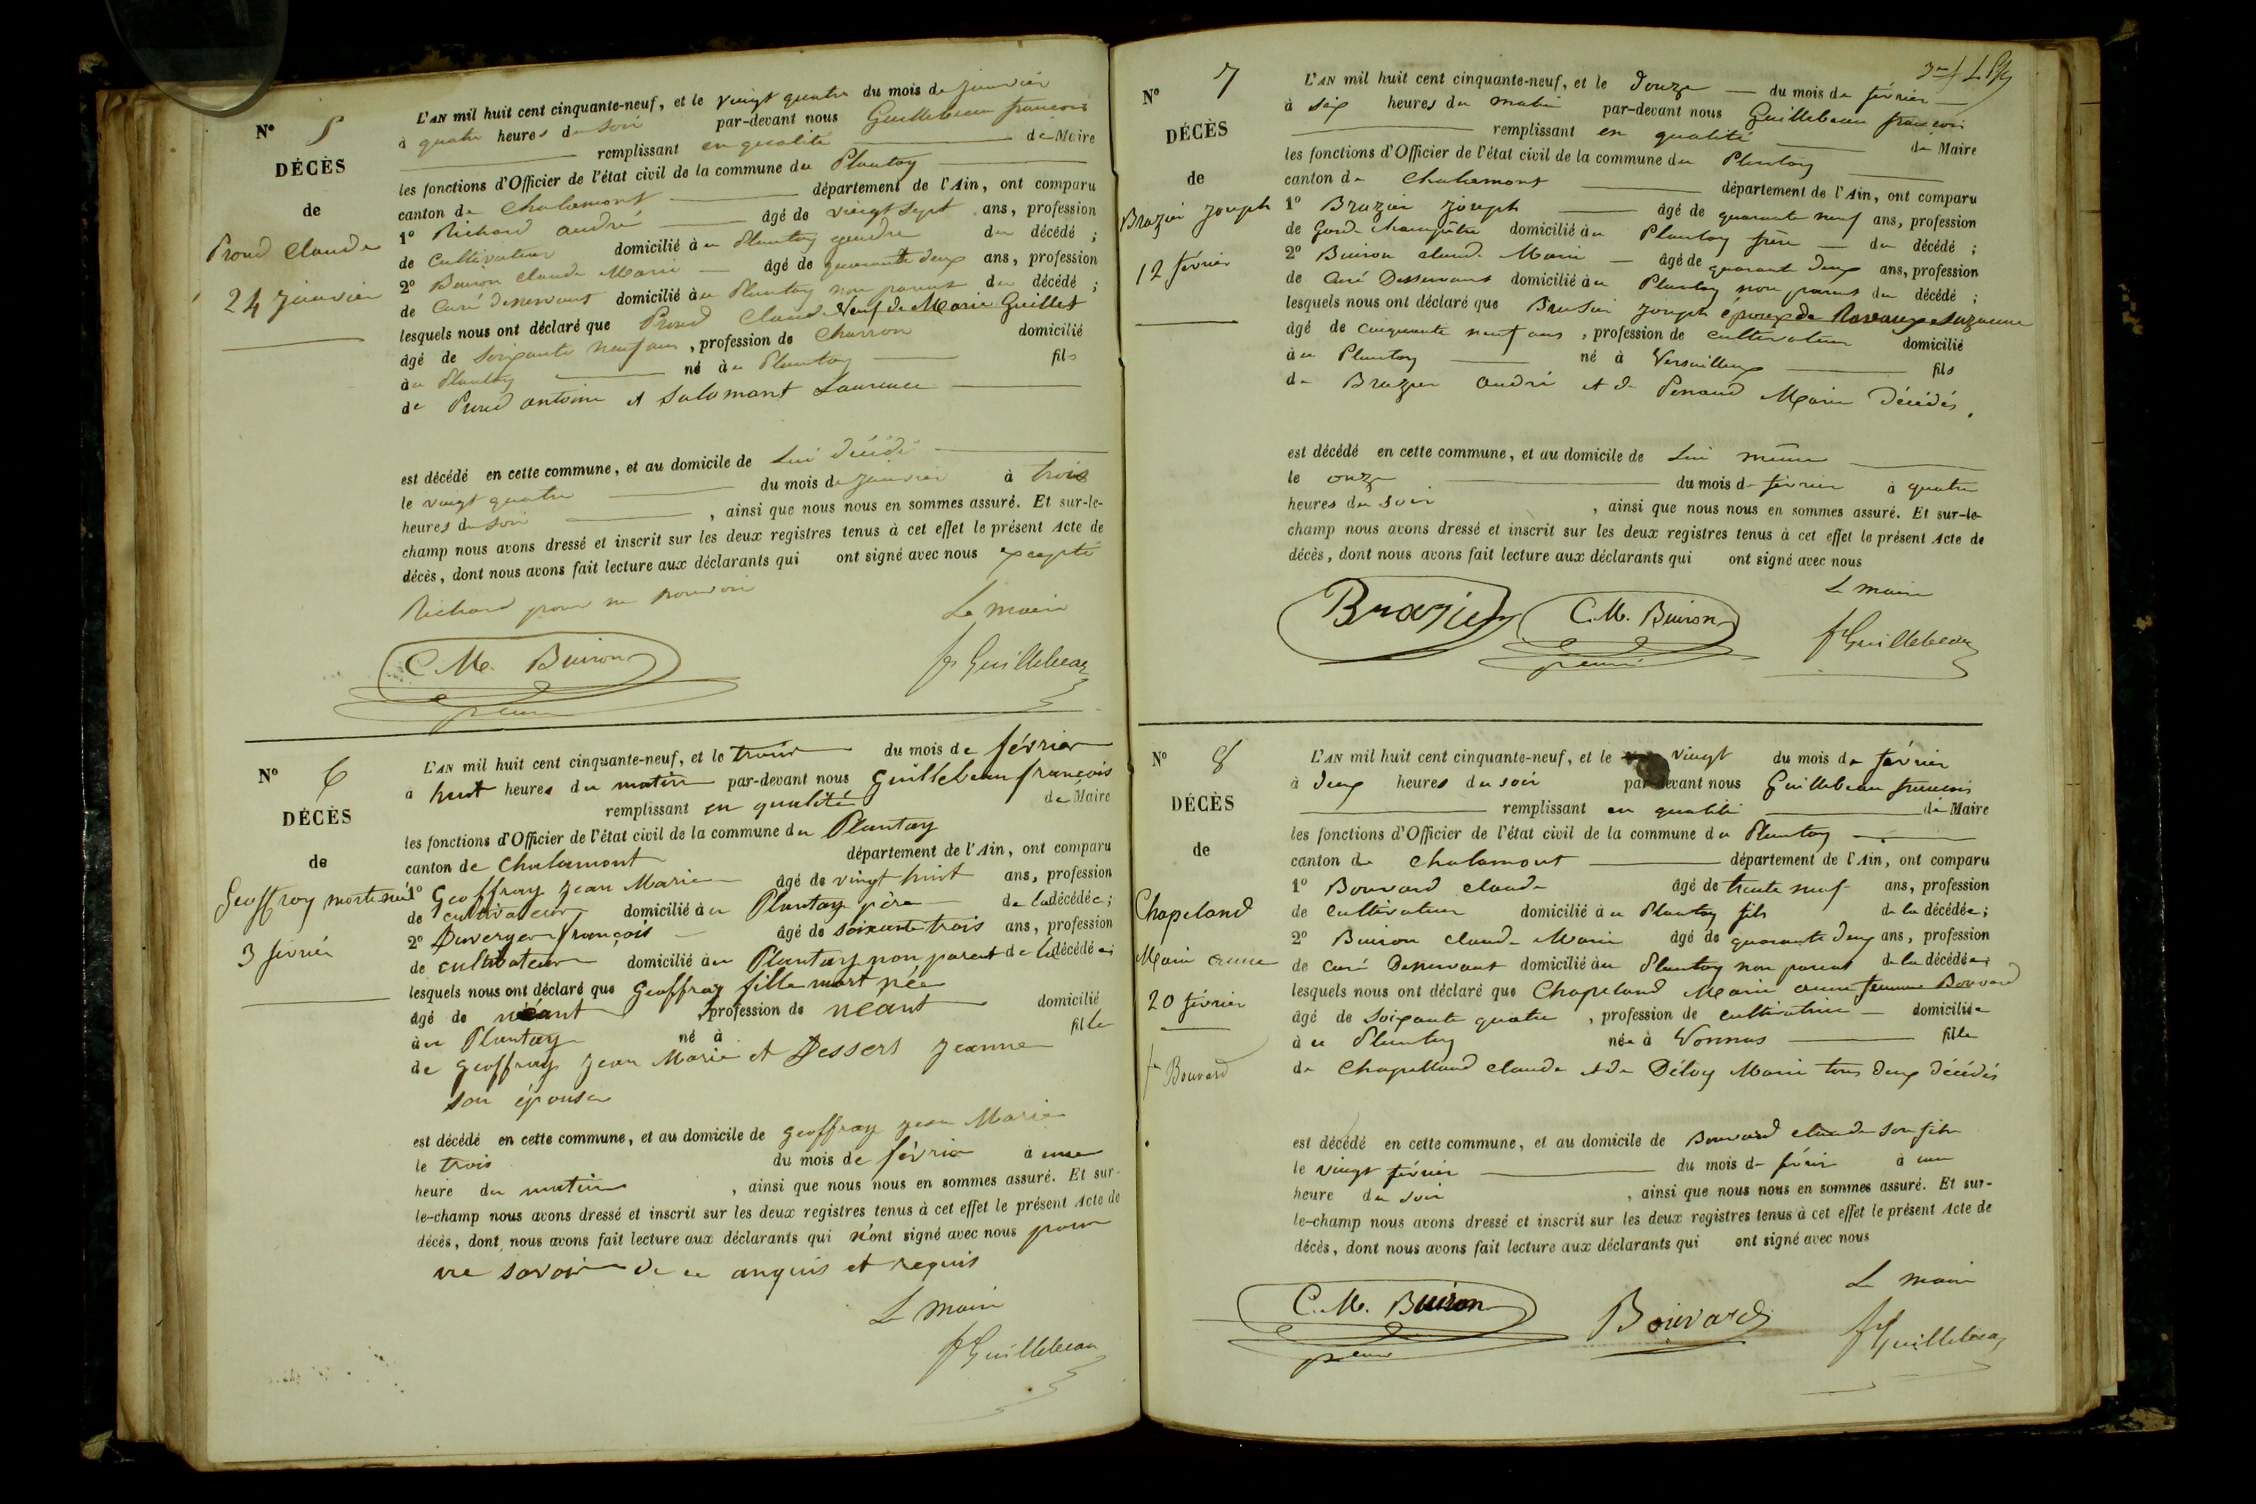 N° 5
DÉCÈS
de
Proud Claude
24 janvier
L'AN mil huit cent cinquante-neuf, et le vingt quatre du mois de janvier
à quatre heures du soir par-devant nous Guillebeau françois
remplissant en qualité de Maire
les fonctions d'Officier de l'état civil de la commune du Plantay
canton de Chalamont département de l'Ain, ont comparu
1° Richard andré âgé de vingt sept ans, profession
de Cultivateur domicilié au Plantay gendre du décédé ;
2° Buiron Claude Marie âgé de quarante deux ans, profession
de Curé desservant domicilié au Plantay non parent du décédé ;
lesquels nous ont déclaré que Proud Claude Veuf de Marie Guillet
âgé de soixante neuf ans , profession de Charron domicilié
au Plantay né au Plantay fils
de Proud antoine et Salamant Laurence
est décédé en cette commune, et au domicile de Lui décédé
le vingt quatre du mois de janvier à trois
heures du soir , ainsi que nous nous en sommes assuré. Et sur-le-
champ nous avons dressé et inscrit sur les deux registres tenus à cet effet le présent Acte de
décès, dont nous avons fait lecture aux déclarants qui ont signé avec nous excepté
Richard pour ne pouvoir
Le maire
C. M. Buiron
fs Guillebeau
N° 6
DÉCÈS
de
Geoffray morte née
3 février
L'AN mil huit cent cinquante-neuf, et le trois du mois de février
à huit heures du matin par-devant nous Guillebeau françois
remplissant en qualité de Maire
les fonctions d'Officier de l'état civil de la commune du Plantay
canton de Chalamont département de l'Ain, ont comparu
1° Geoffray Jean Marie âgé de vingt huit ans, profession
de cultivateur domicilié au Plantay père de la décédée ;
2° Duverger françois âgé de soixante trois ans, profession
de cultivateur domicilié au Plantay non parent de la décédée ;
lesquels nous ont déclaré que Geoffray fille mort née
âgé de néant , profession de neant domicilié
au Plantay né à fille
de geoffray Jean Marie et Dessert Jeanne
son épouse
est décédé en cette commune, et au domicile de geoffray jean Marie
le trois du mois de février à une
heure du matin , ainsi que nous nous en sommes assuré. Et sur-
le-champ nous avons dressé et inscrit sur les deux registres tenus à cet effet le présent Acte de
décès, dont nous avons fait lecture aux déclarants qui n'ont signé avec nous pour
ne savoir de ce anquis et requis
Le maire
fs Guillebeau
N° 7
DÉCÈS
de
Brazier Joseph
12 février
L'AN mil huit cent cinquante-neuf, et le douze du mois de février
à six heures du matin par-devant nous Guillebeau françois
remplissant en qualité de Maire
les fonctions d'Officier de l'état civil de la commune du Plantay
canton de Chalamont département de l'Ain, ont comparu
1° Brazier Joseph âgé de quarante neuf ans, profession
de Garde champêtre domicilié au Plantay frère du décédé ;
2° Buiron claude Marie âgé de quarante deux ans, profession
de Curé Desservant domicilié au Plantay non parent du décédé ;
lesquels nous ont déclaré que Brasier Joseph époux de Suzanne
âgé de cinquante neuf ans , profession de cultivateur domicilié
au Plantay né à Versailleux fils
de Brazier andré et de Penaud Marie Décédés.
est décédé en cette commune, et au domicile de Lui même
le onze du mois de février à quatre
heures du soir , ainsi que nous nous en sommes assuré. Et sur-le-
champ nous avons dressé et inscrit sur les deux registres tenus à cet effet le présent Acte de
décès, dont nous avons fait lecture aux déclarants qui ont signé avec nous
Le maire
Brazier C. M. Buiron
fs Guillebeau
N° 8
DÉCÈS
de
Chapeland
Marie anne
20 février
fe Bouvard
L'AN mil huit cent cinquante-neuf, et le vingt du mois de février
à deux heures du soir par-devant nous Guillebeau françois
remplissant en qualité de Maire
les fonctions d'Officier de l'état civil de la commune du Plantay
canton de Chalamont département de l'Ain, ont comparu
1° Bouvard claude âgé de trente neuf ans, profession
de cultivateur domicilié au Plantay fils de la décédée ;
2° Buiron claude Marie âgé de quarante deux ans, profession
de curé Desservant domicilié au Plantay non parent de la décédée ;
lesquels nous ont déclaré que Chapeland Marie anne femme Bouvard
âgé de soixante quatre , profession de cultivatrice domiciliée
au Plantay née à Vonnas fille
de Chapelland claude et de Déloy Marie tous deux décédés
est décédé en cette commune, et au domicile de Bouvard claude son fils
le vingt février du mois de février à une
heure du soir , ainsi que nous nous en sommes assuré. Et sur-
le-champ nous avons dressé et inscrit sur les deux registres tenus à cet effet le présent Acte de
décès, dont nous avons fait lecture aux déclarants qui ont signé avec nous
Le maire
C. M. Buiron Bouvard
fs Guillebeau